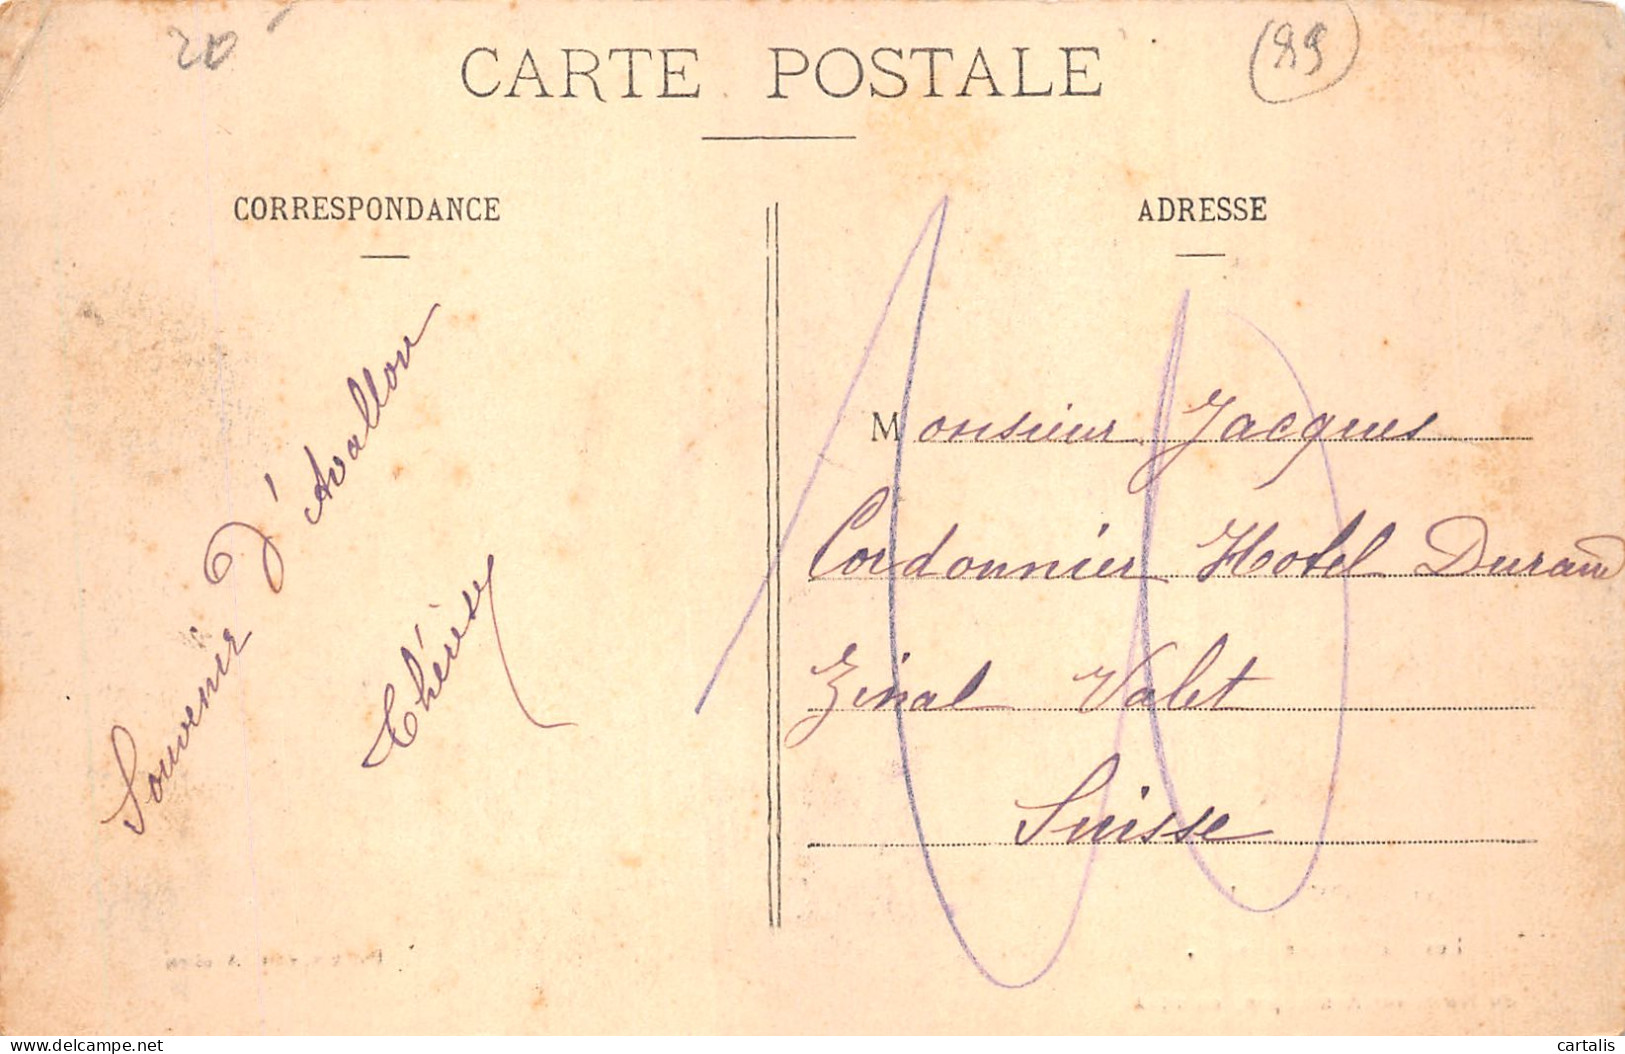 20
89
CARTE POSTALE
CORRESPONDANCE
ADRESSE
Souvenir d'Avallon
Thérèse
Monsieur Jacques
Cordonnier Hotel Durand
Zinal Valet
Suisse
delcampe.net
cartalis